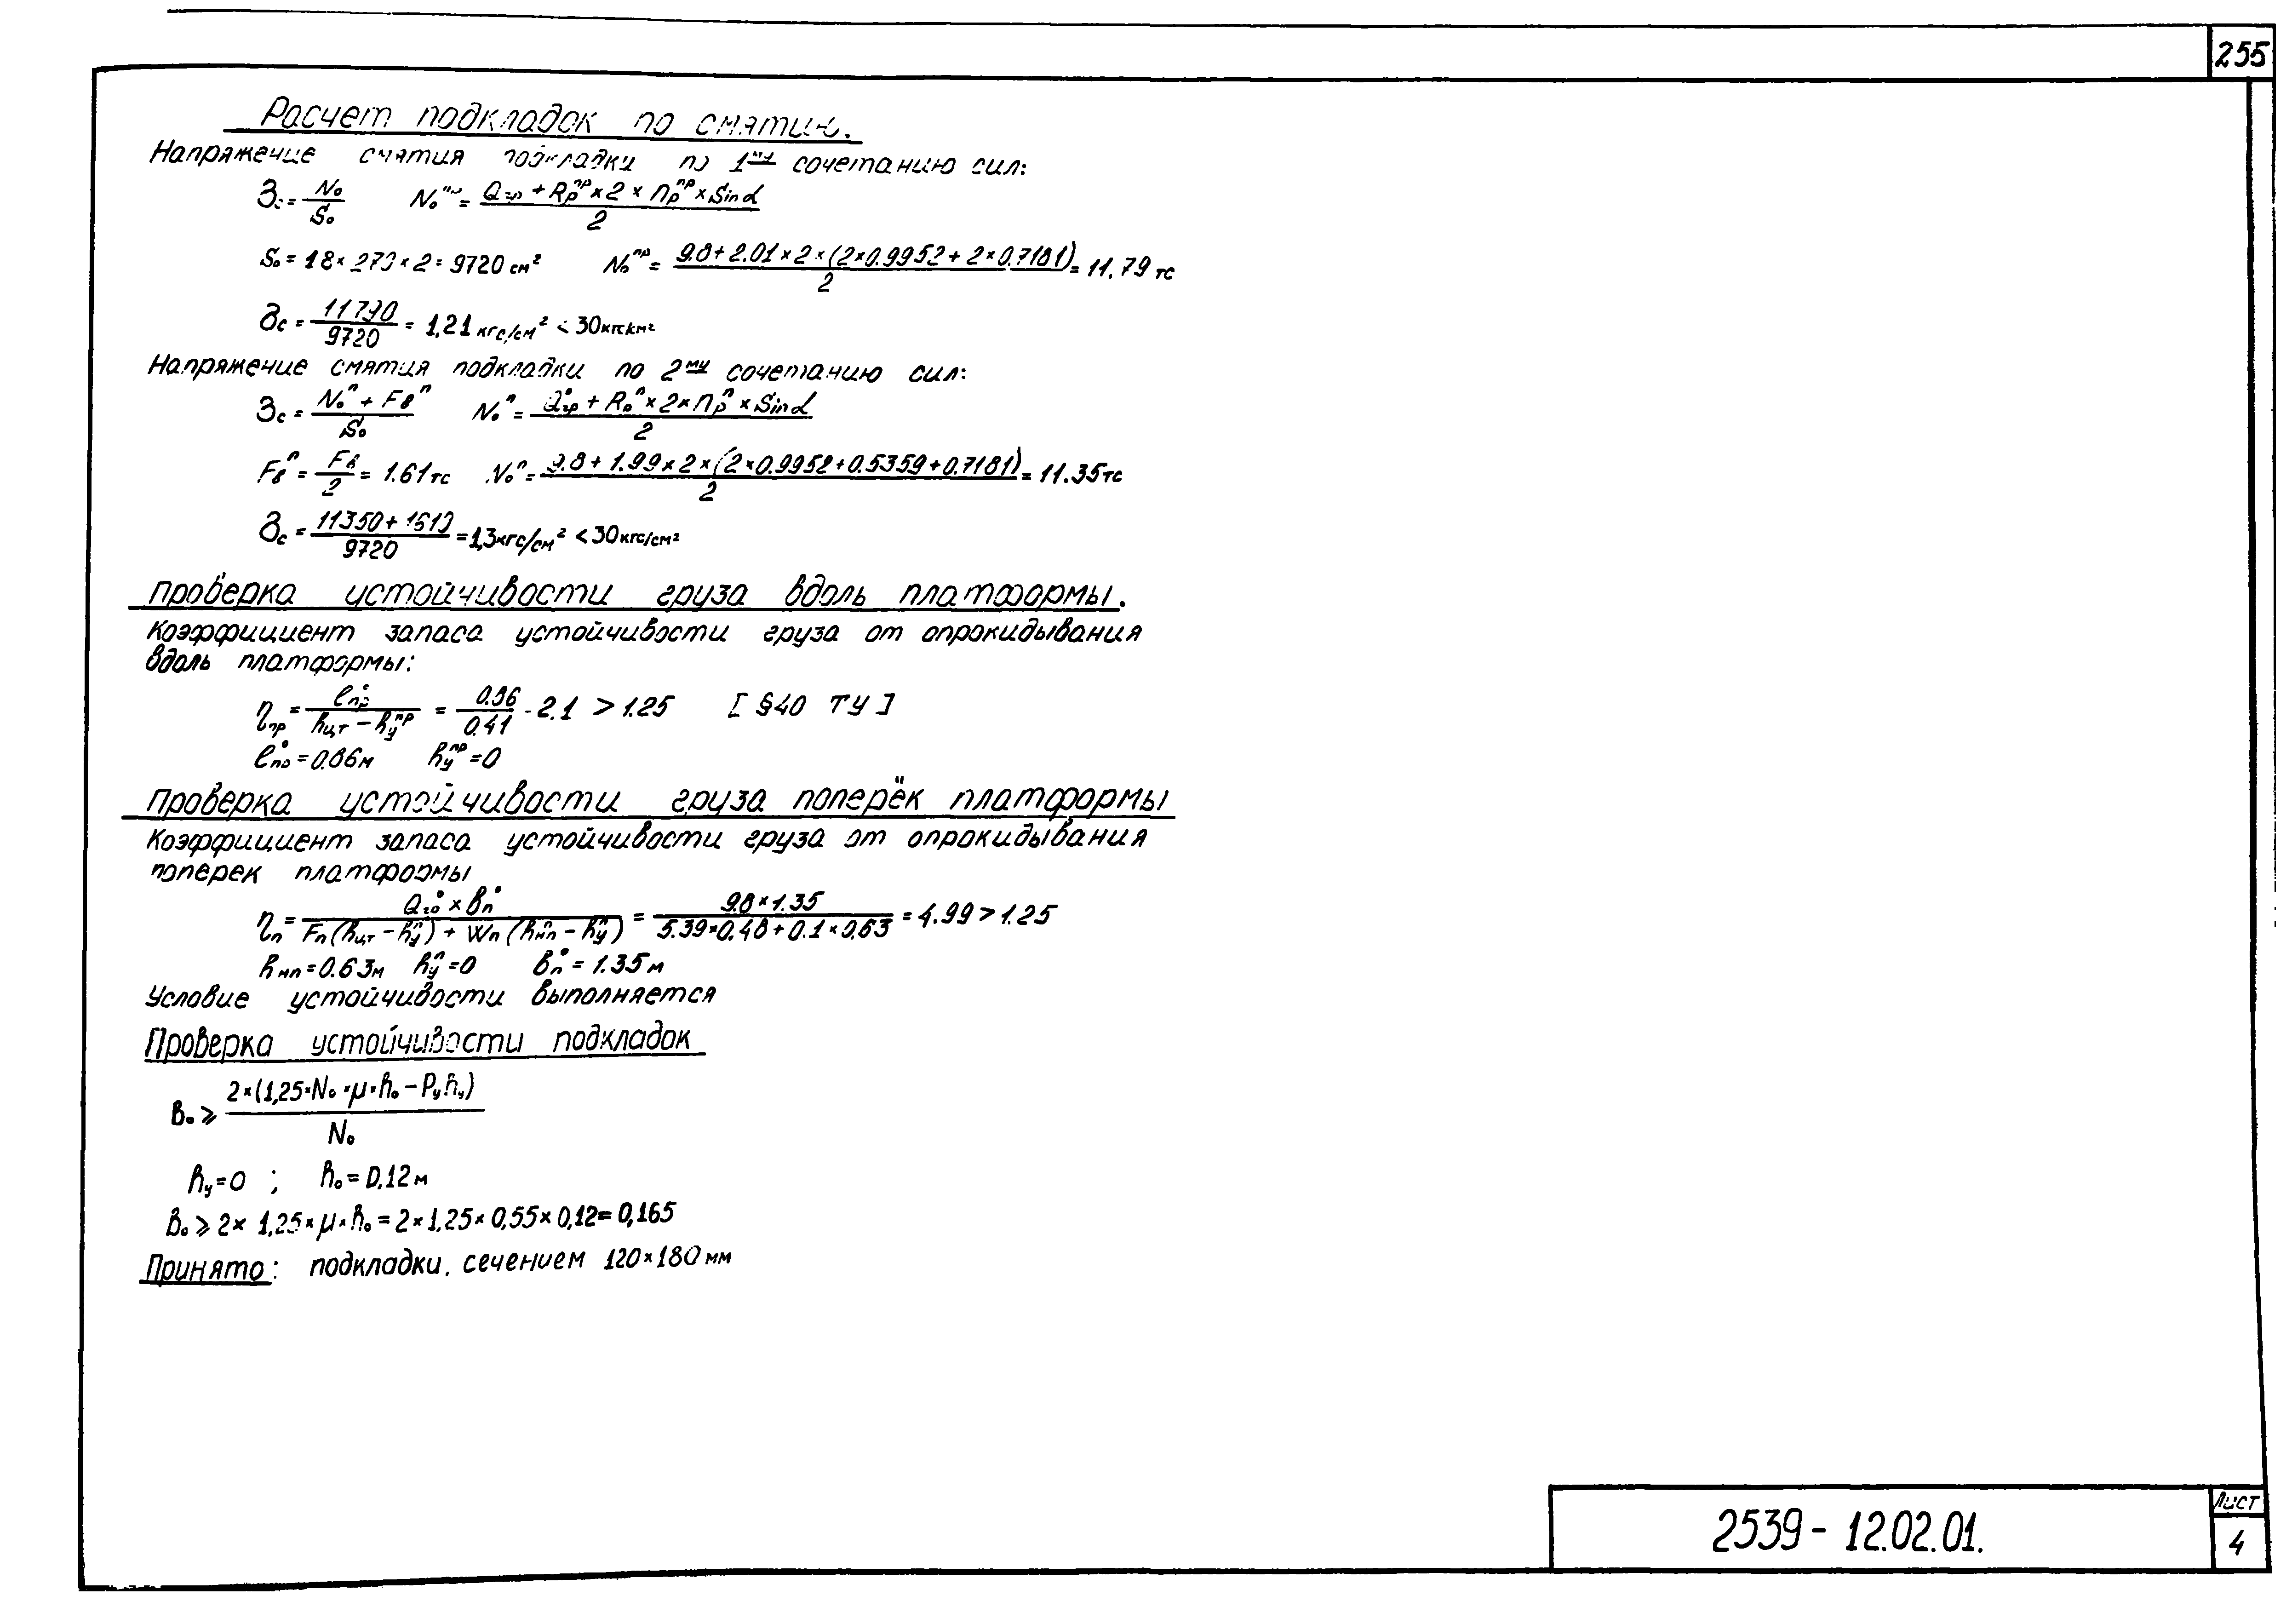 255
Расчет подкладок по смятию.
Напряжение смятия подкладки по 1му сочетанию сил:
Зс = N₀/S₀ N₀ᵖʳ = (Qгр + Rрᵖʳ × 2 × nрᵖʳ × Sin α)/2
S₀ = 18 × 270 × 2 = 9720 см² N₀ⁿᵖ = (9.8 + 2.01 × 2 × (2×0.9952 + 2×0.7181))/2 = 11.79 тс
бс = 11790/9720 = 1,21 кгс/см² < 30 кгс/см²
Напряжение смятия подкладки по 2му сочетанию сил:
Зс = (N₀ⁿ + Fвⁿ)/S₀ N₀ⁿ = (Q°гр + Rрⁿ × 2 × nрⁿ × Sin α)/2
Fвⁿ = Fв/2 = 1.61 тс N₀ⁿ = (9.8 + 1.99 × 2 × (2×0.9952 + 0.5359 + 0.7181))/2 = 11.35 тс
бс = (11350 + 1610)/9720 = 1,3 кгс/см² < 30 кгс/см²
Проверка устойчивости груза вдоль платформы.
Коэффициент запаса устойчивости груза от опрокидывания
вдоль платформы:
ηпр = l°пр/(hцт − hуᵖʳ) = 0.86/0.41 - 2.1 > 1.25 [§40 ТУ]
l°пр = 0.86 м hуⁿᵖ = 0
Проверка устойчивости груза поперёк платформы
Коэффициент запаса устойчивости груза от опрокидывания
поперек платформы
ηп = (Qгр° × вп°)/(Fп(hцт − hуⁿ) + Wп(hⁿнп − hуⁿ)) = (9.8 × 1.35)/(5.39×0.48 + 0.1×0,63) = 4.99 > 1.25
hнп = 0.63 м hуⁿ = 0 вп° = 1.35 м
Условие устойчивости выполняется
Проверка устойчивости подкладок
В₀ ⩾ 2×(1,25·N₀·μ·h₀ − Pуhу)/N₀
hу = 0 ; h₀ = 0,12 м
В₀ ⩾ 2 × 1,25 × μ × h₀ = 2 × 1,25 × 0,55 × 0,12 = 0,165
Принято: подкладки, сечением 120×180 мм
2539 - 12.02.01.
Лист
4